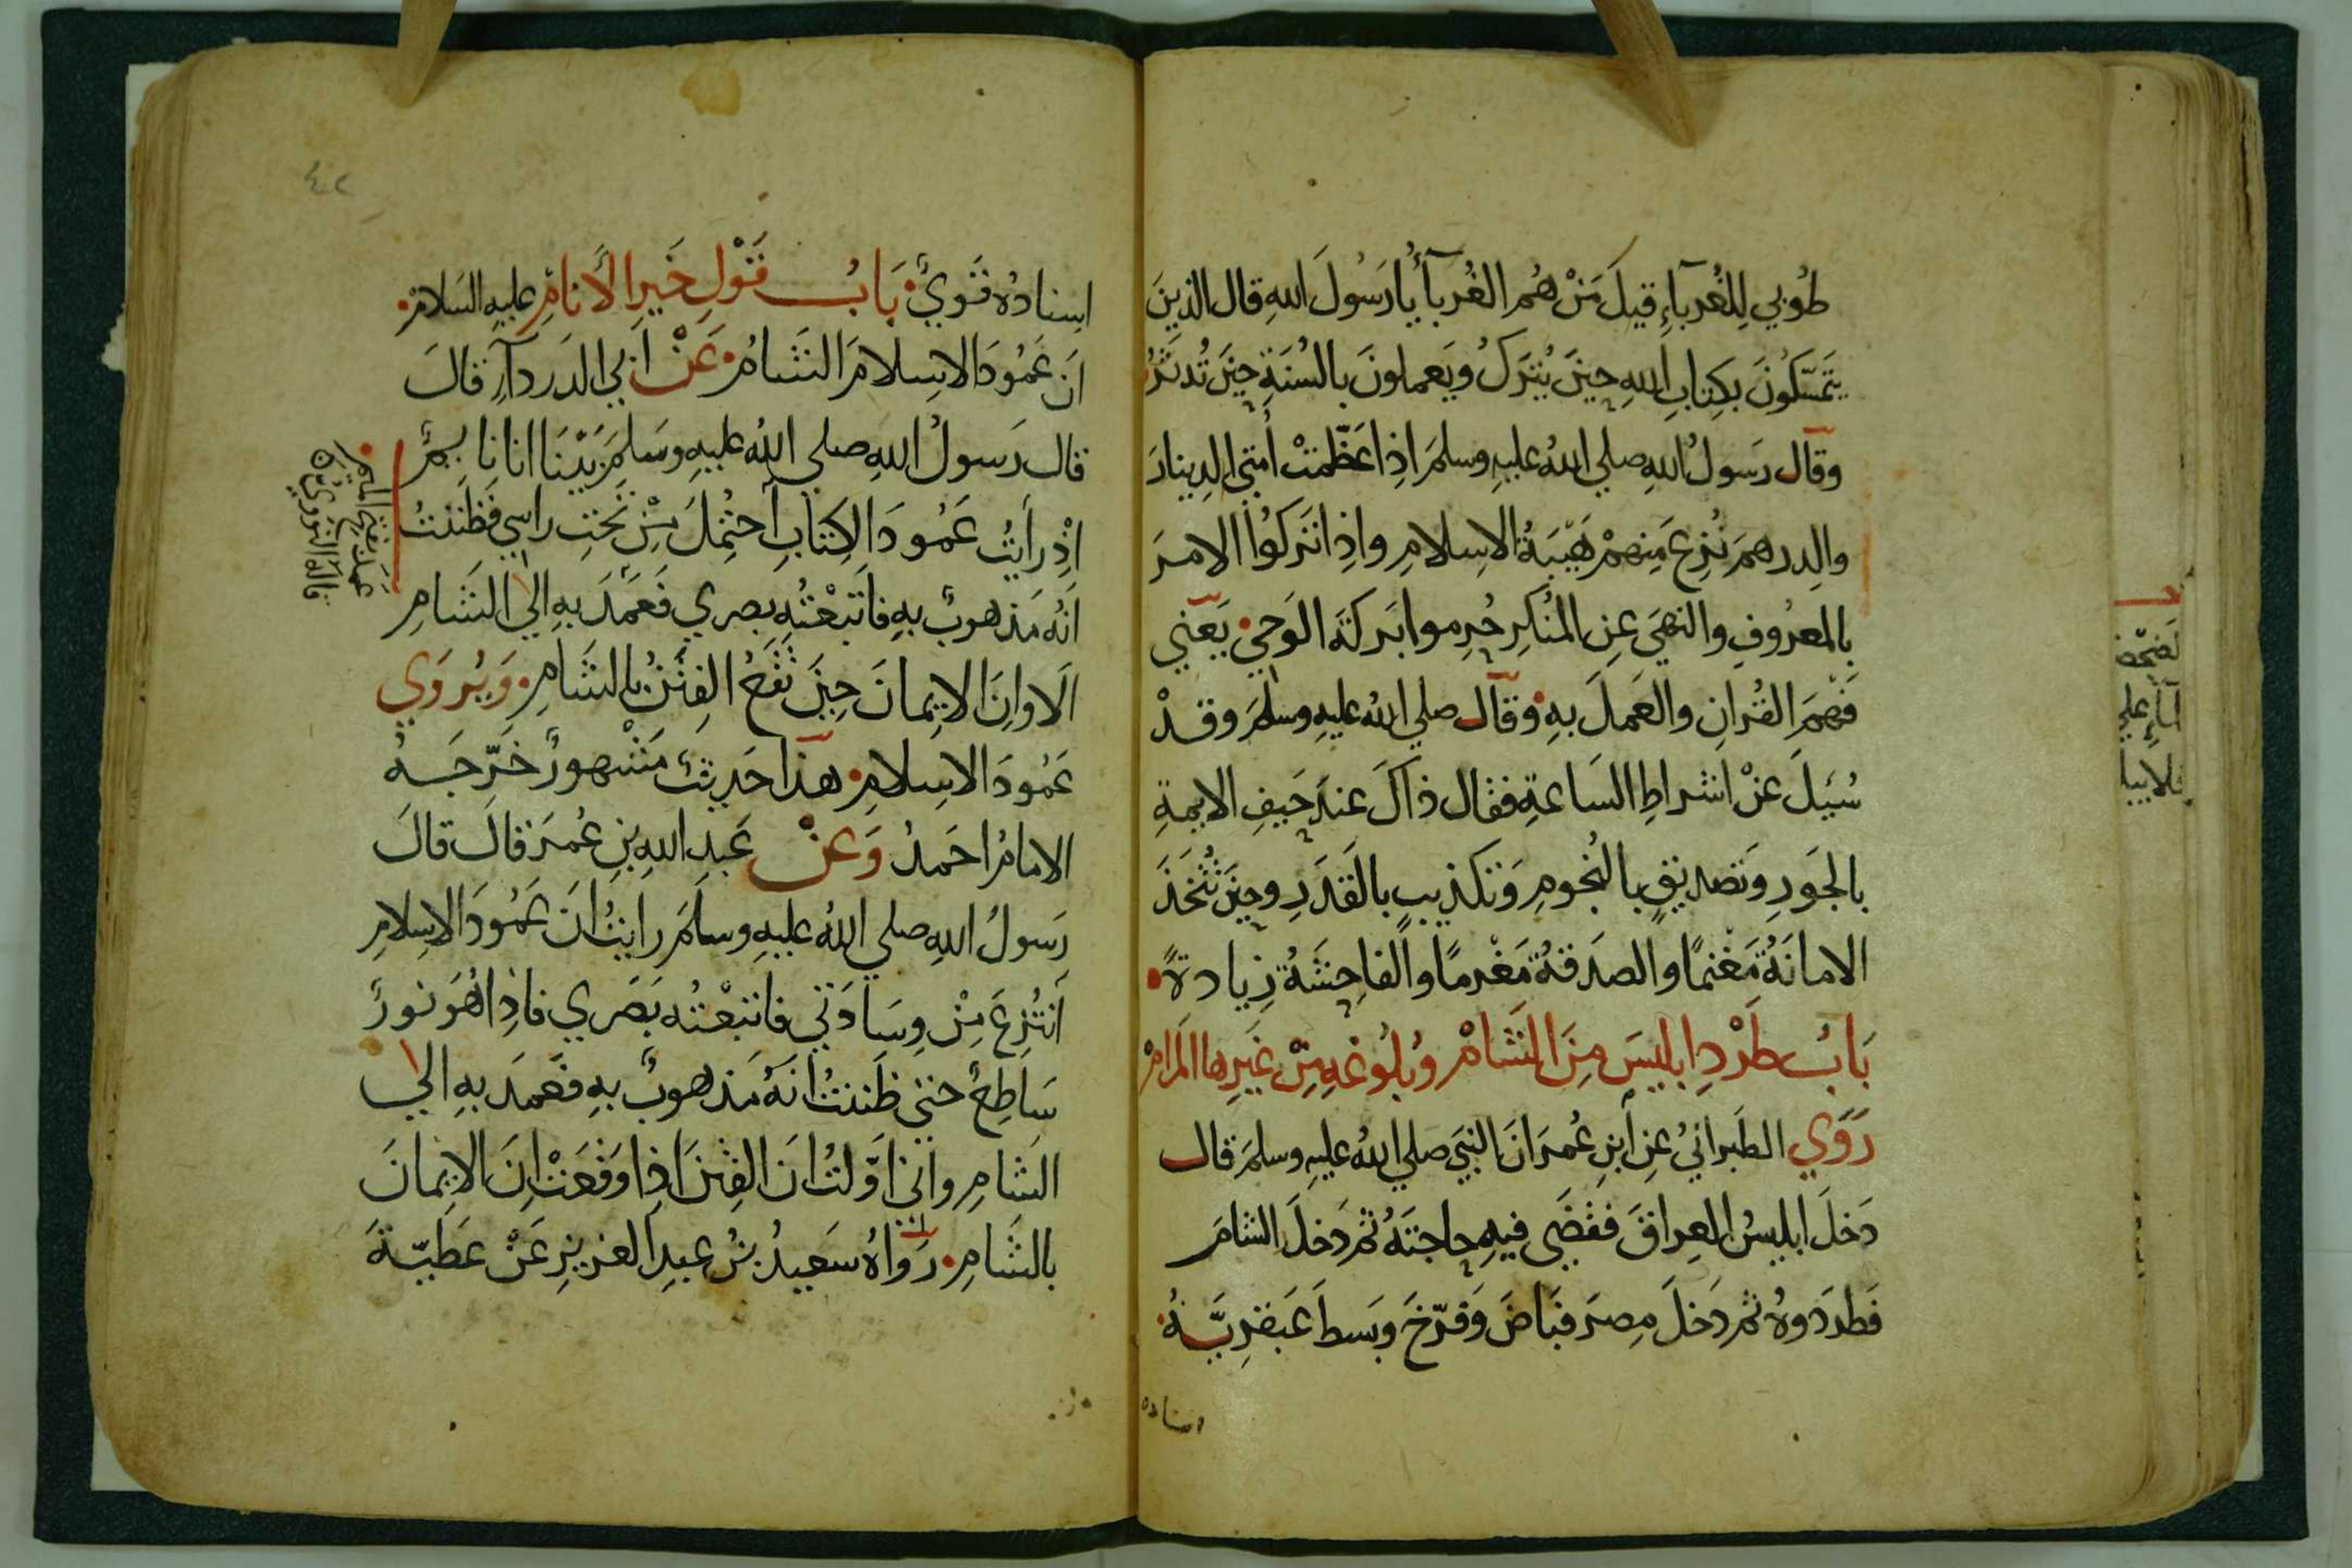 طُوبي لِلغُربآءِ قيلَ مَنْ هُم الغُربآءُ يا رَسُولَ اللهِ قال الذينَ
يَتَمَسّكُونَ بكِتابِ اللهِ حِينَ يُترَكُ ويَعملونَ بالسُنَةِ حِينَ تُدثَرُ
وقال رسَولُ اللهِ صلي اللهُ عليهِ وسلمَ اذِا عَظّمَتْ أُمتي الدينارَ
والدِرهمَ نُزِعَ مِنهمْ هَيْبَةُ الاِسلامِ واذِا تَركوُا الامرَ
بالمعرُوفِ والنهيَ عِن المُنكرِ حُرِموا بَركةَ الوَحيِ يَعَني
فَهمَ القُرانِ والعَملَ بهِ وقال صلي اللهُ عليهِ وسلمَ وقدْ
سُئِلَ عَنْ اشراطِ السَاعَةِ فقال ذاكَ عندَ حَيفِ الايمةِ
بالجَورِ وتَصديقٍ بالنُجومِ وَتكذيبٍ بالقَدَرِ وحِينَ تُتَخَذَ
الامانَةُ مَغْنمًا والصدَقةُ مَغْرمًا والفاحِشَةُ زِيادةً
بَابُ طَرْدِ ابليسَ مِنَ الشَامْ وبُلُوغهِ مِنْ غَيرِها المَرامْ
رَوَي الطَبرانيُ عِن ابنِ عُمرَ انَ النبيَ صلي اللهُ عليهِ وسلمَ قال
دَخلَ ابليسُ العِراقَ فقضَي فيهِ حاجتَهُ ثمَ دَخلَ الشامَ
فَطردَوهُ ثمَ دَخلَ مِصرَ فبَاضَ وَفرّخَ وبَسطَ عَبقريَّهُ
اسناده
اسِنادهُ قَويٌ بَابُ قَوْلِ خَيرِ الأَنامِ عليهِ السَلامْ
انَ عَمُودَ الاسِلامَ الشَامُ عَنْ ابي الدَردآءِ قالَ
قال رَسولُ اللهِ صلي اللهُ عليهِ وسَلمَ بَيْنَا انا نايمٌ
اذْ رأَيتُ عَمُودَ الكِتابِ احتُمِلَ مِنْ تَحتِ راسي فَظننتُ
انَهُ مَذهوبٌ بهِ فاتَبَعْتُهِ بصري فَعَمدَ بهِ الي الشَامِ
الَا وانِ الايمانَ حِينَ تَقَعُ الفِتَنُ بالشَامِ وَيُروَي
عَمُودَ الاسِلامِ هذا حَديثٌ مَشْهورٌ خَرّجَهُ
الامامُ احمَدُ وَعنْ عَبدِ اللهِ بنِ عُمرَ قالَ قالَ
رَسولُ اللهِ صلي اللهُ عليهِ وسلمَ رايتُ انَ عَمُودَ الاِسلامِ
اَنتُزِعَ مِنْ وِسَادَتي فاتبعْتُه بَصَري فاذِا هُوَ نورٌ
سَاطِعٌ حتي ظَننتُ انَهُ مَذهوبٌ بهِ فعَمدَ بهِ الي
الشامِ واني اوّلتُ انَ الفِتنَ اذِا وَقعَتْ انَ الايمانَ
بالشَامِ رَواهُ سَعيدُ بنُ عبدِ العزيزِ عَنْ عَطيّةَ
عَمَدَ بفتح الميم
قاله النووي
٤٢